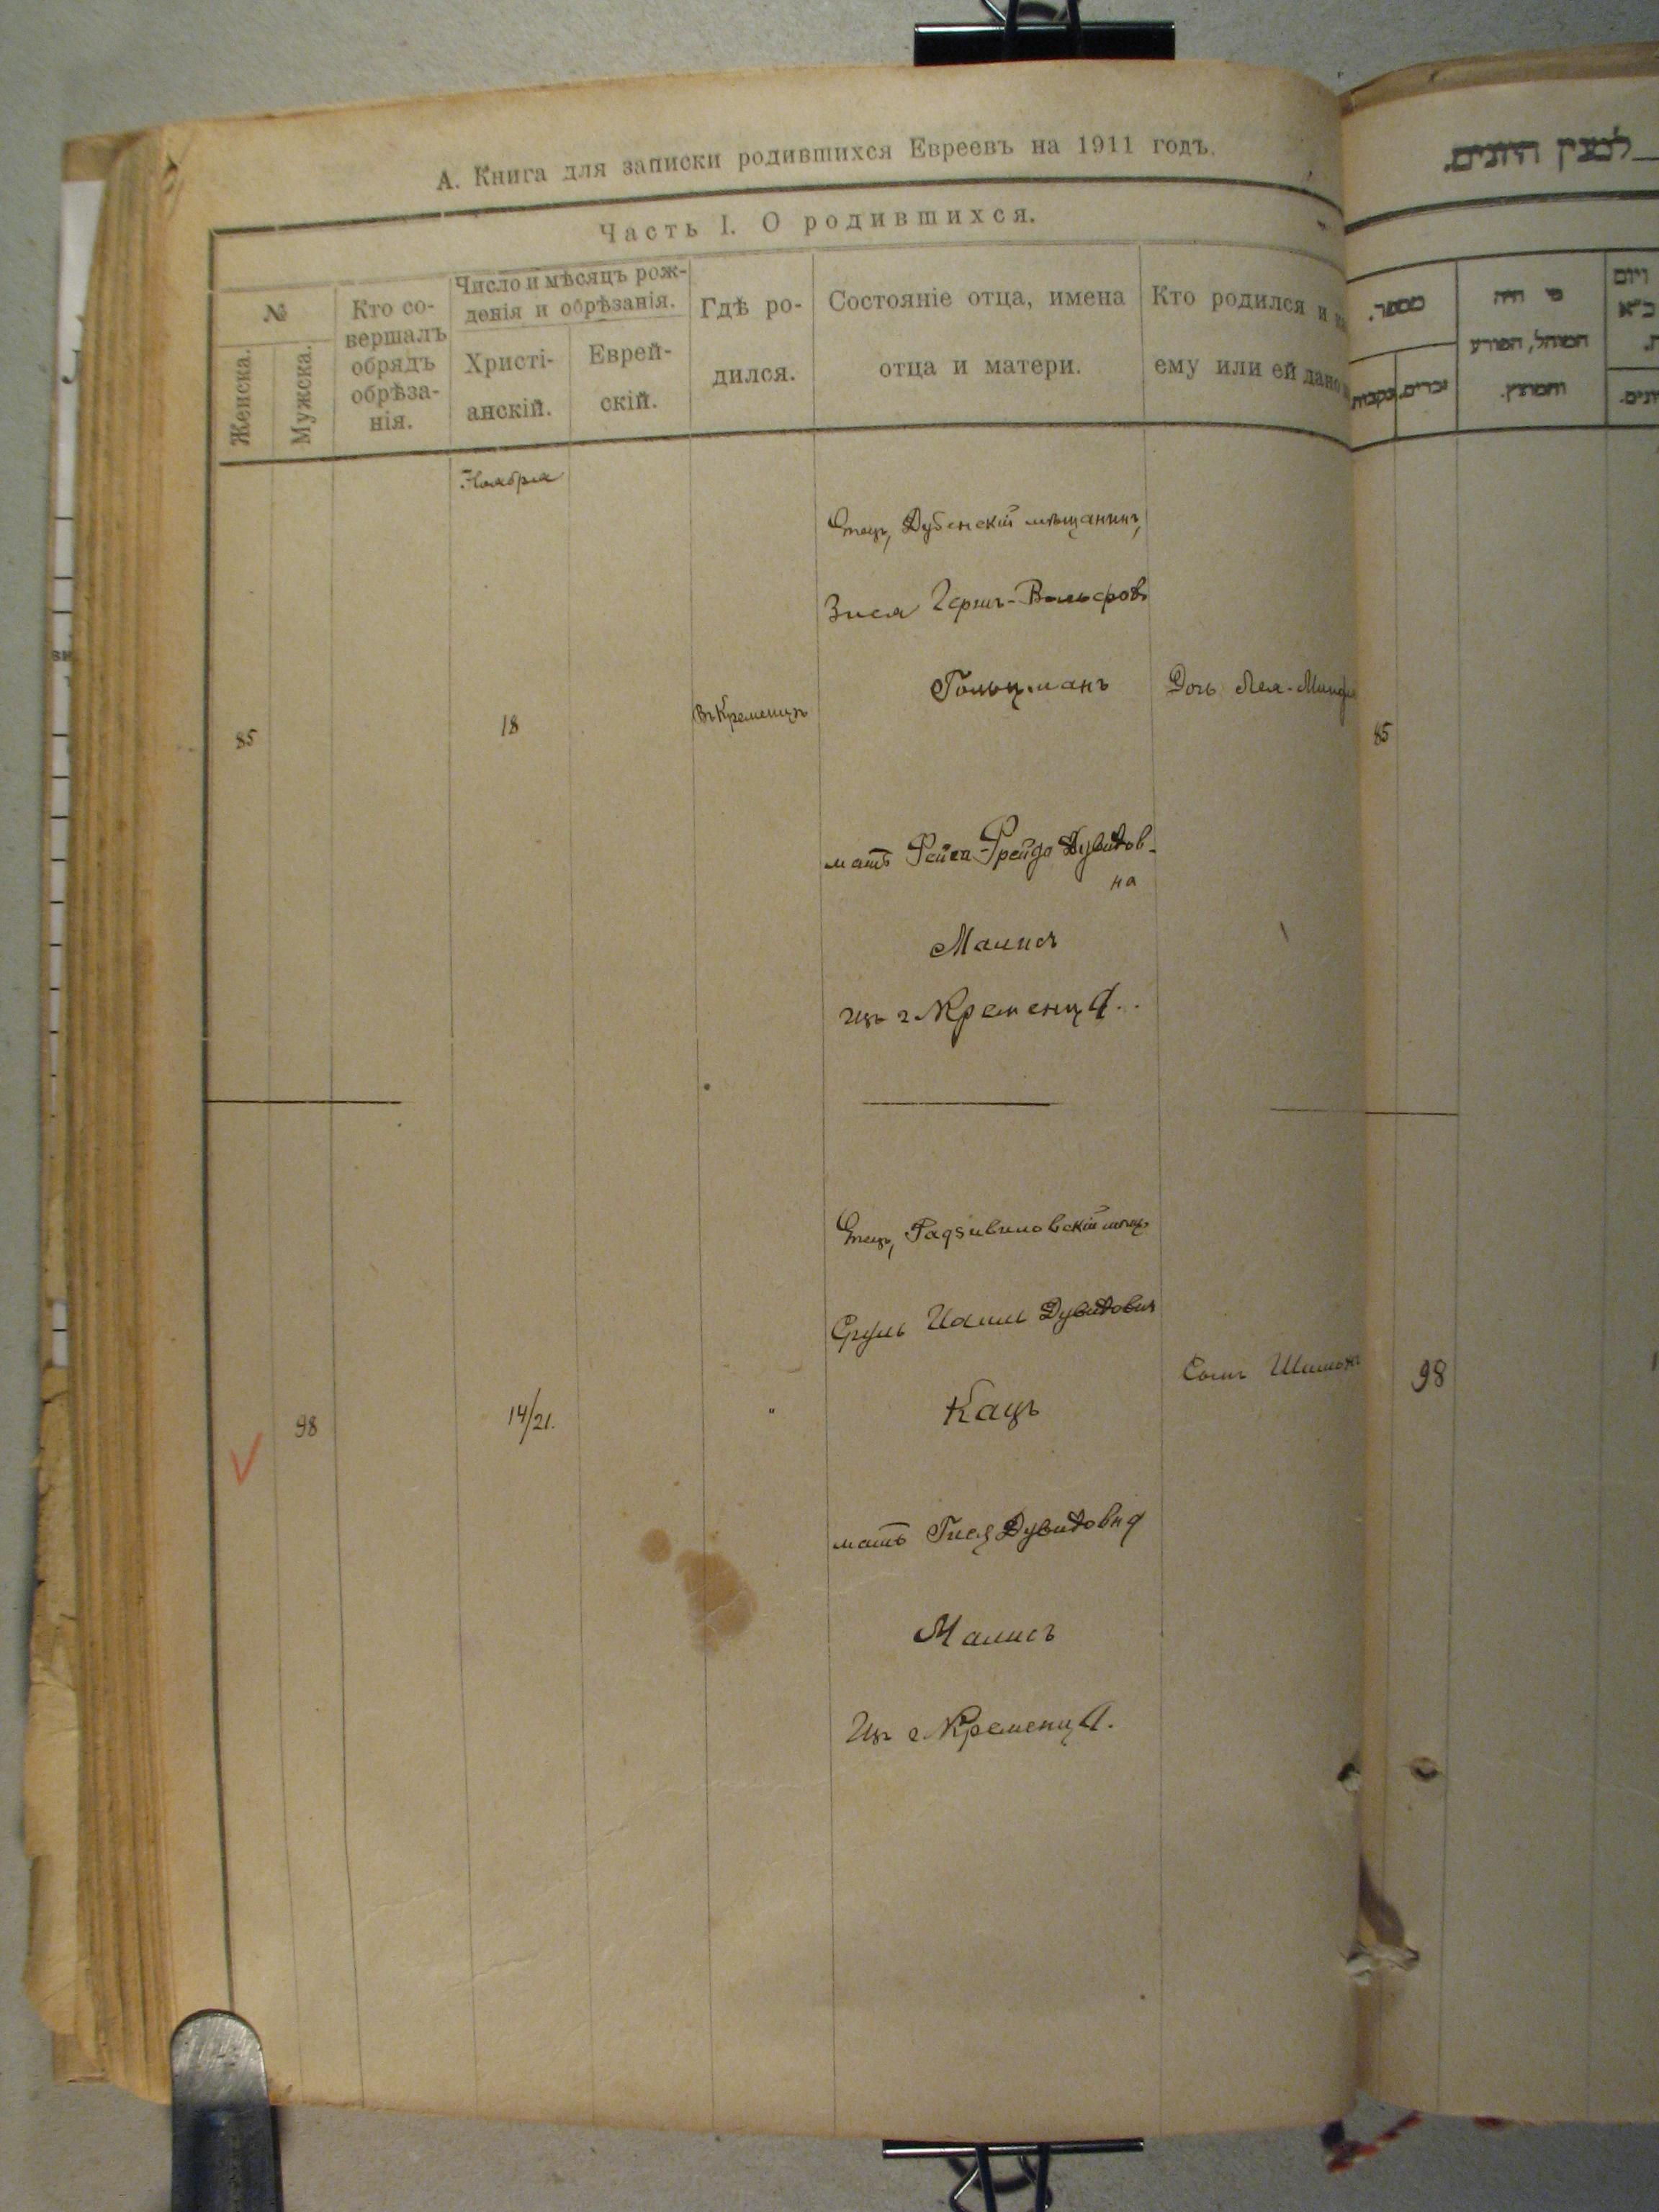 А. Книга для записки родившихся Евреевъ на 1911 годъ.
Часть I. О родившихся.
№
Женска.
Мужска.
Кто со-
вершалъ
обрядъ
обрѣза-
нія.
Число и мѣсяцъ рож-
денія и обрѣзанія.
Христі-
анскій.
Еврей-
скій.
Гдѣ ро-
дился.
Состояніе отца, имена
отца и матери.
Кто родился и
ему или ей дано
Ноября
85
18
Въ Кременцѣ
Отецъ, Дубенскій мѣщанинъ,
Зися Гершъ-Вольфовъ
Гольцманъ
мать Рейся-Фрейда Дувидов-
на
Малисъ
изъ г Кременца.
Дочь Лея-
98
14/21.
"
Отецъ, Радзивиловскій мѣщ
Сруль Дувидовичъ
Кацъ
мать Гися Дувидовна
Малисъ
Изъ г Кременца.
Сынъ
היונים.
מספר.
זכרים.
נקבות
מי היה
המוהל, הפורע
והמוצץ.
ויום
85
98